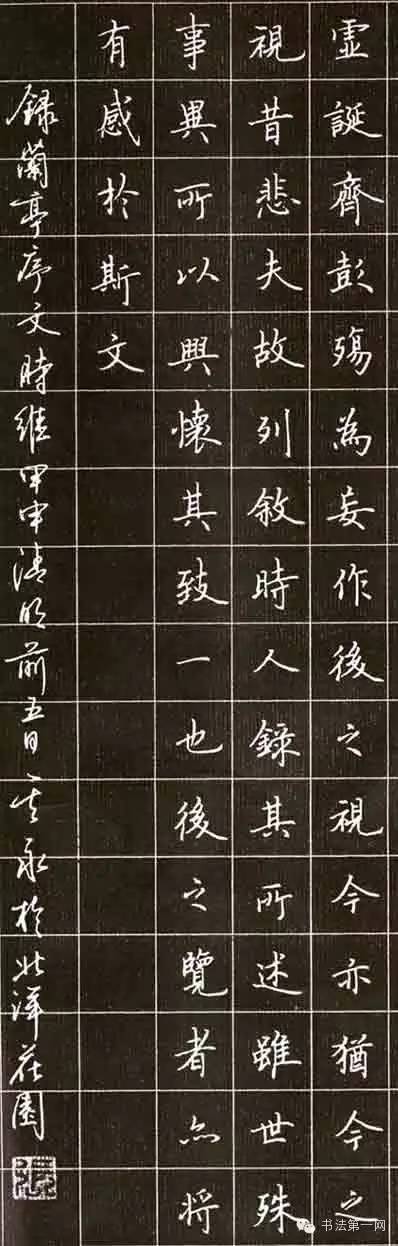 虛誕齊彭殤為妄作後之視今亦猶今之
視昔悲夫故列敘時人錄其所述雖世殊
事異所以興懷其致一也後之覽者亦將
有感於斯文
錄蘭亭序文時維甲申清明前五日永於北洋園
張
书法第一网